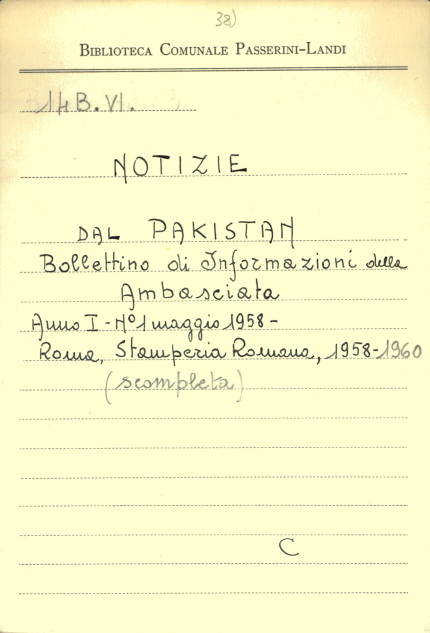 38)
BIBLIOTECA COMUNALE PASSERINI-LANDI
14 B.VI.
NOTIZIE
DAL PAKISTAN
Bollettino di Informazioni della
Ambasciata
Anno I - N° 1 maggio 1958 -
Roma, Stamperia Romana, 1958-1960
(scompleta)
C